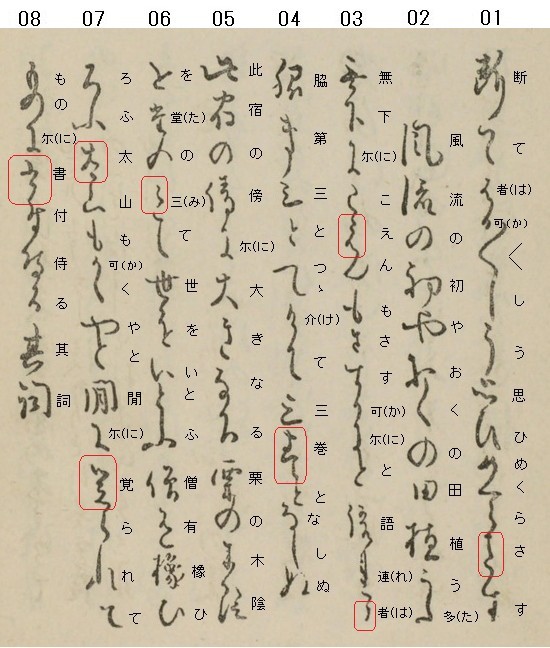 01
断て者(は)可(か)〱しう思ひめくらさす
02
風流の初やおくの田植う多(た)
03
無下尓(に)こえんもさす可(か)尓(に)と語連(れ)者(は)
04
脇第三とつゝ介(け)て三巻となしぬ
05
此宿の傍尓(に)大きなる栗の木陰
06
を堂(た)の三(み)て世をいとふ僧有橡ひ
07
ろふ太山も可(か)くやと閒尓(に)覚られて
08
もの尓(に)書付侍る其詞